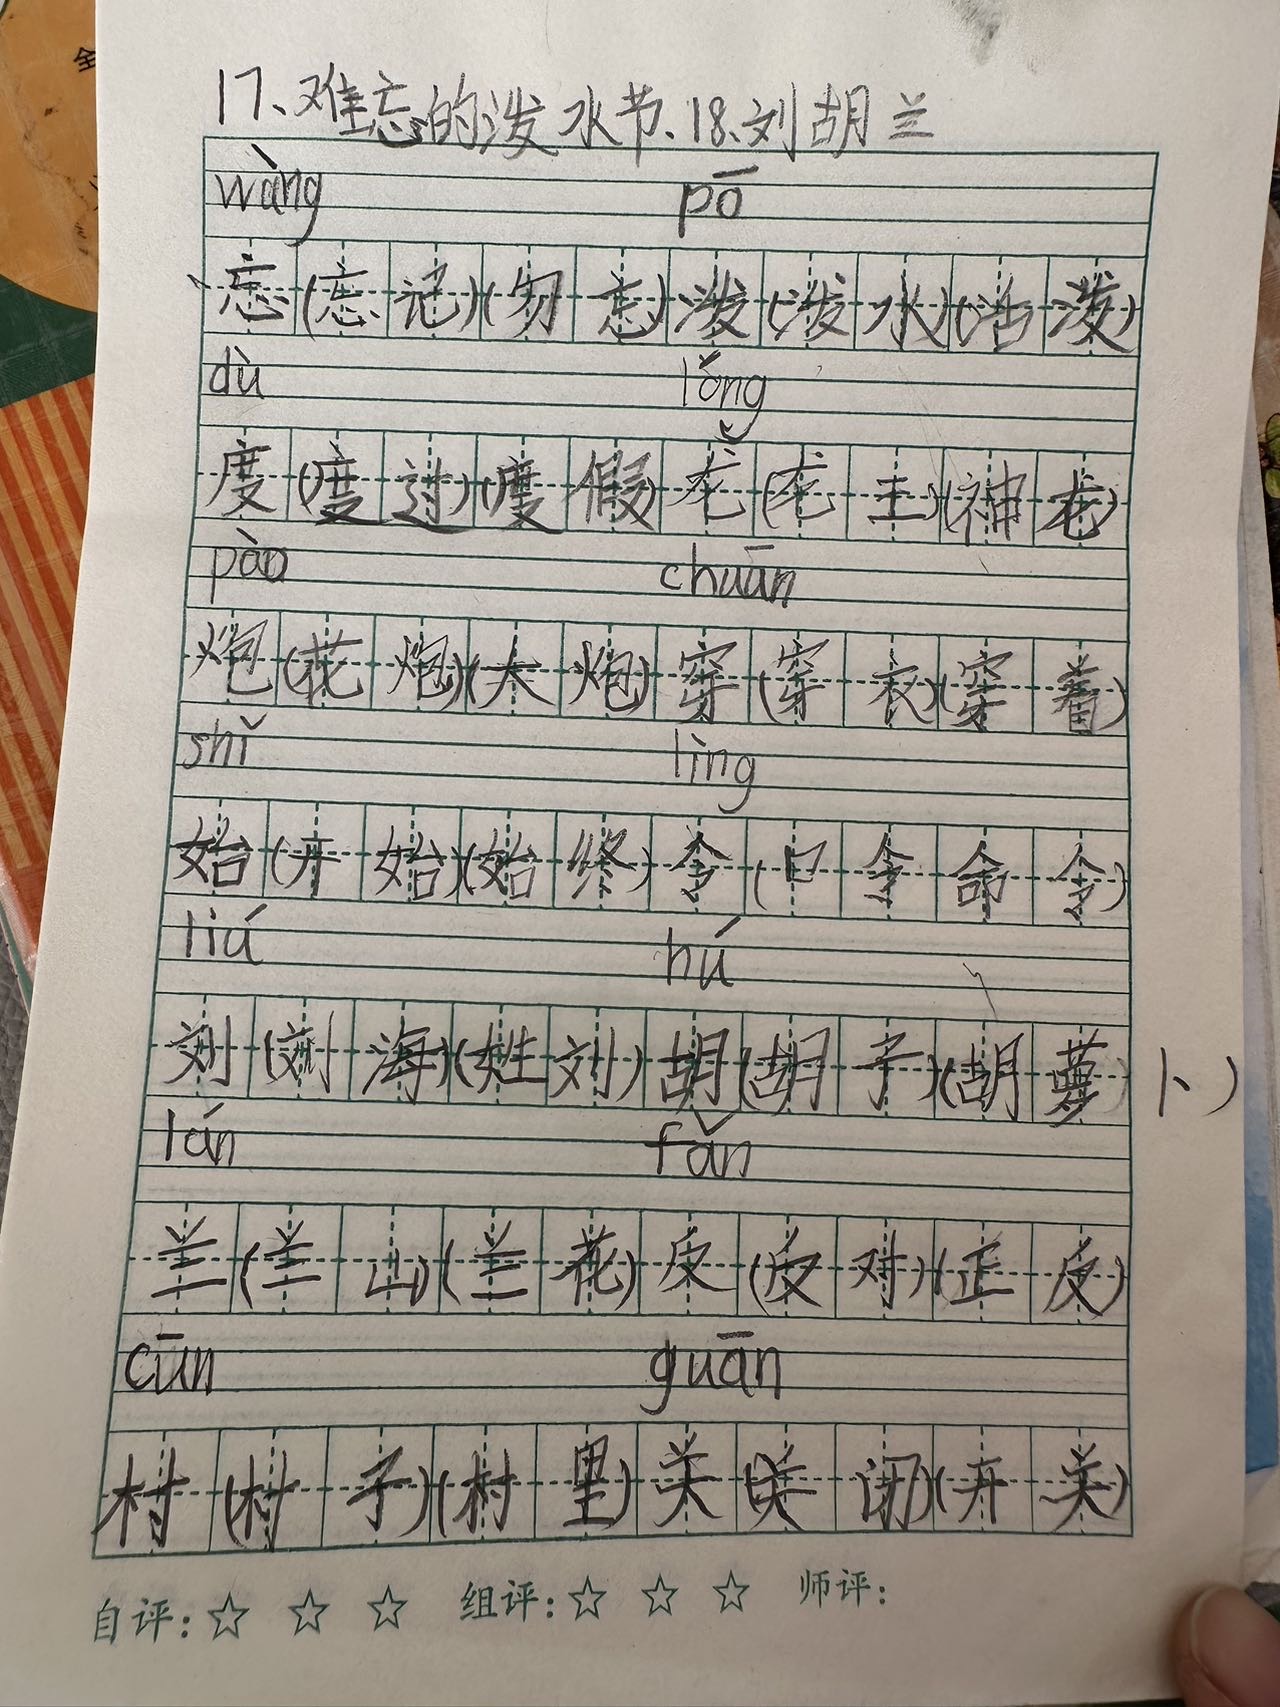 17、难忘的泼水节、18、刘胡兰
wàng pō
忘(忘记)(勿忘)泼(泼水)(活泼)
dù lǒng
度(度过)(度假)龙(龙王)(神龙)
pào chuān
炮(花炮)(大炮)穿(穿衣)(穿着)
shǐ lìng
始(开始)(始终)令(口令命令)
liú hú
刘(刘海)(姓刘)胡(胡子)(胡萝卜)
lán fǎn
兰(兰山)(兰花)反(反对)(正反)
cūn guān
村(村子)(村里)关(关闭)(开关)
自评:☆ ☆ ☆ 组评:☆ ☆ ☆ 师评: